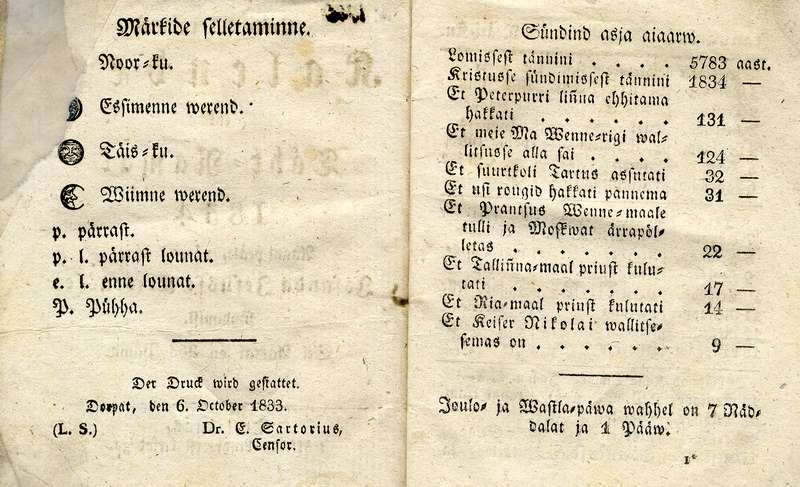 Märkide selletaminne.
Noor-ku.
Essimenne werend.
Täis-ku.
Wiimne werend.
p. pärrast.
p. l. pärrast lounat.
e. l. enne lounat.
P. Pühha.
Der Druck wird gestattet.
Dorpat, den 6. October 1833.
(L. S.) Dr. E. Sartorius,
Censor.
Sündind asja aiaarw.
Lomissest tännini . . . . 5783 aast.
Kristusse sündimissest tännini 1834 —
Et Peterpurri liñna ehhitama
hakkati . . . . . . 131 —
Et meie Ma Wenne-rigi wal-
litsusse alla sai . . . . 124 —
Et suurtkoli Tartus assutati 32 —
Et usi rougid hakkati pannema 31 —
Et Prantsus Wenne-maale
tulli ja Moskwat ärrapöl-
letas . . . . . . . 22 —
Et Talliñna-maal priust kulu-
tati . . . . . . . 17 —
Et Ria-maal priust kulutati 14 —
Et Keiser Nikolai wallitse-
semas on . . . . . . 9 —
Joulo- ja Wastla-päwa wahhel on 7 Näd-
dalat ja 1 Pääw.
1*